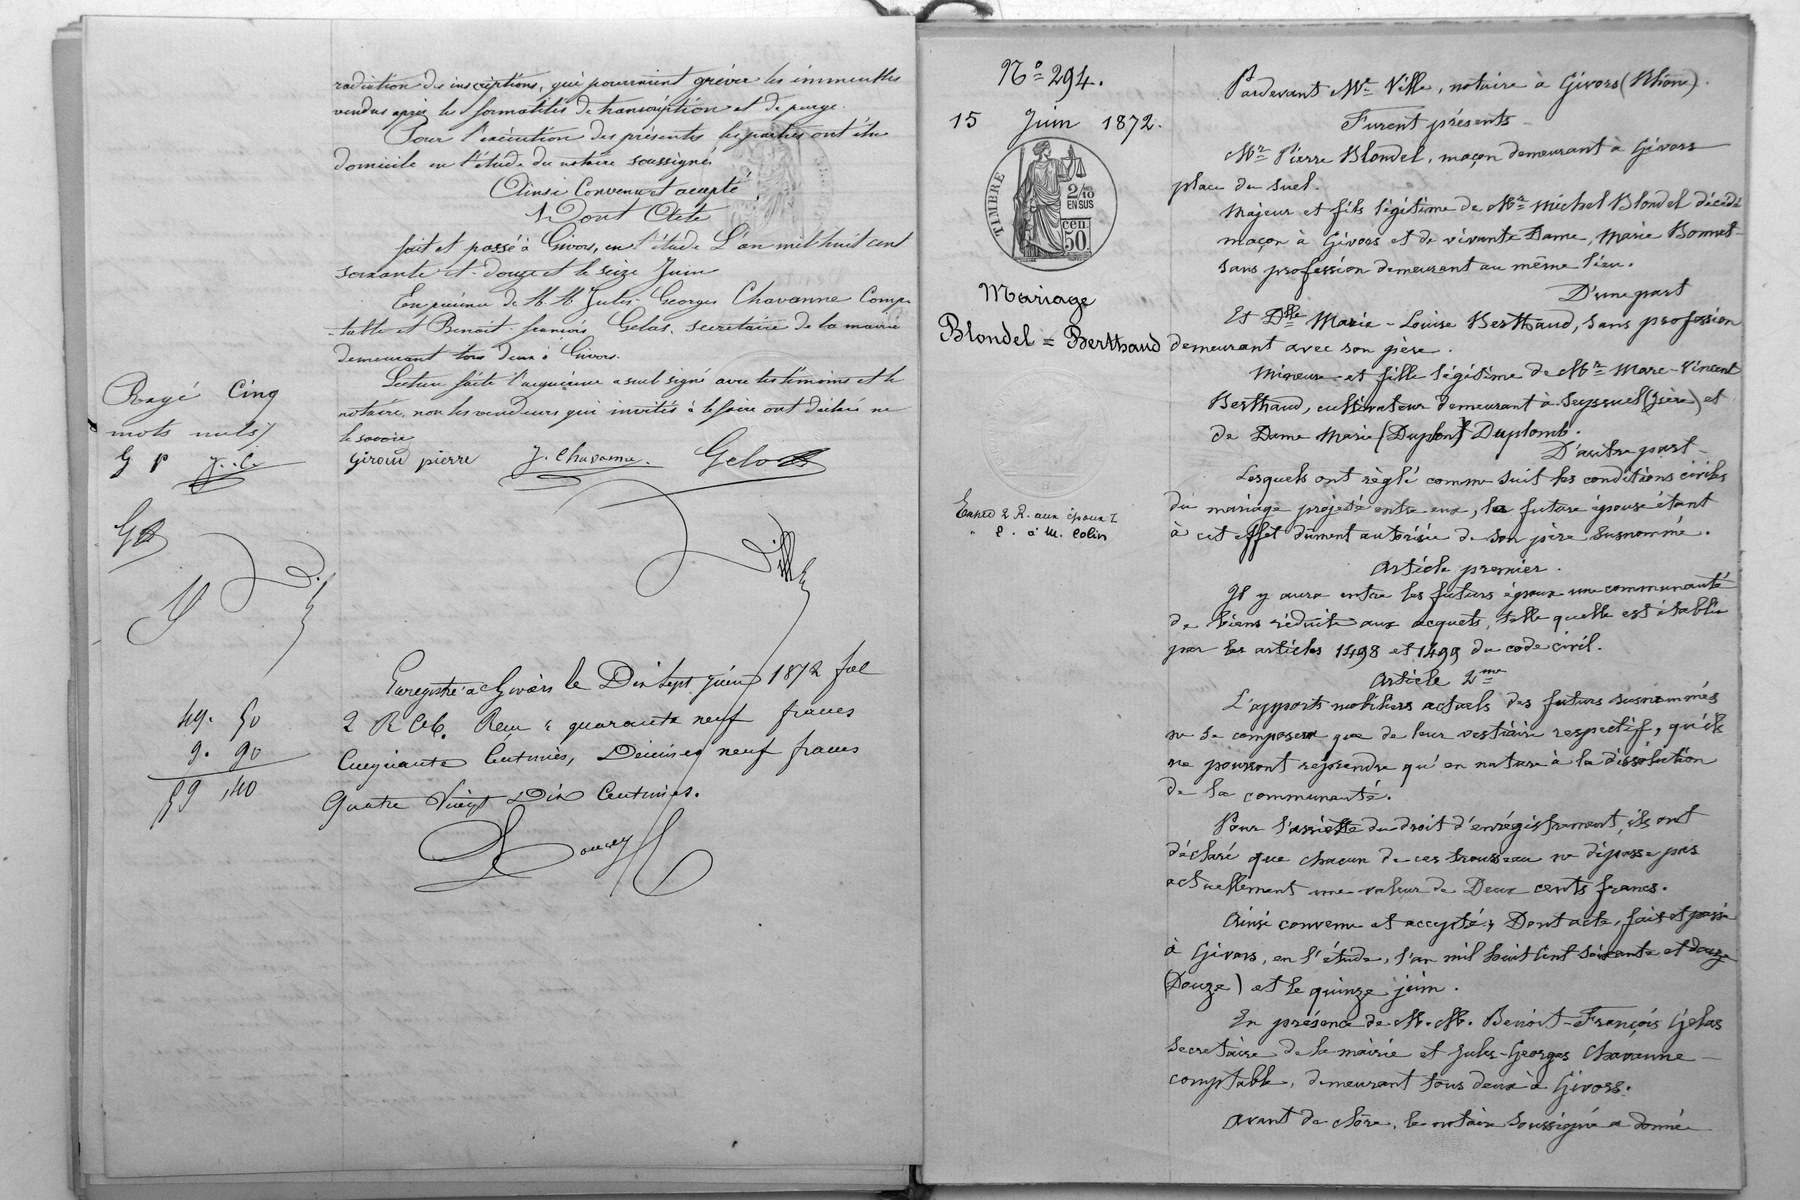 radiation des inscriptions, qui pourraient grèver les immeubles
vendus après les formalités de transcription et de purge.
Pour l'exécution des présentes les parties ont élu
domicile en l'étude du notaire soussigné
Ainsi Convenu et accepté
Dont Acte
fait et passé à Givors, en l'étude L'an mil huit cent
soixante et douze et le seize Juin
En présence de M. M. Jules-Georges Chavanne Comp-
-table et Benoit-françois Gelas, secrétaire de la mairie
demeurant tous deux à Givors.
Lecture faite l'acquéreur a seul signé avec les témoins et le
notaire, non les vendeurs qui invités à le faire ont déclaré ne
le savoir
Rayé Cinq
mots nuls
G P J. C.
Giroud pierre J. Chavanne. Gelas
Ville
Enregistré à Givors le Dix Sept Juin 1872 fol
2 R C 6. Reçu quarante neuf francs
Cinquante Centimes, Décimes neuf francs
Quatre Vingt Dix Centimes.
49. 50
9. 90
59,40
N.º 294.
15 Juin 1872.
TIMBRE
2/10
EN SUS
50 cen.
Mariage
Blondel = Berthaud
Exped 2 R. aux époux
à M. Colin
Pardevant Me Ville, notaire à Givors (Rhône).
Furent présents
Mr Pierre Blondel, maçon demeurant à Givors
place du suel.
Majeur et fils légitime de Mr Michel Blondel décédé
maçon à Givors et de vivante Dame, Marie Bonnet-
sans profession demeurant au même lieu.
D'une part
Et Dlle Marie-Louise Berthaud, sans profession
demeurant avec son père.
Mineure et fille légitime de Mr Marc-Vincent
Berthaud, cultivateur demeurant à Seyssuel (Isère) et
de Dame Marie (Duplon) Duplomb.
D'autre part-
Lesquels ont règlé comme suit les conditions civiles
du mariage projeté entre eux, la future épouse étant
à cet effet dûment autorisée de son père susnommé.
Article premier.
Il y aura entre les futurs époux une communauté
de biens réduite aux acquets, telle quelle est établie
par les articles 1498 et 1499 du code civil.
Article 2me
L'apports mobiliers actuels des futurs susnommés
ne se composent que de leur vestiaire respectif, qu'ils
ne pourront reprendre qu'en nature à la dissolution
de la communauté.
Pour l'assiette du droit d'enrégistrement, ils ont
déclaré que chacun de ces trousseau ne dépasse pas
actuellement une valeur de Deux cents francs.
Ainsi convenu et accepté, Dont acte, fait et passé
à Givors, en l'étude, l'an mil huit cent soixante et douze
(Douze) et le quinze juin.
En présence de M. M. Benoit-François Gelas
Secrétaire de la mairie et Jules-Georges Chavanne
comptable, demeurant tous deux à Givors.
Avant de clôre, le notaire soussigné a donné